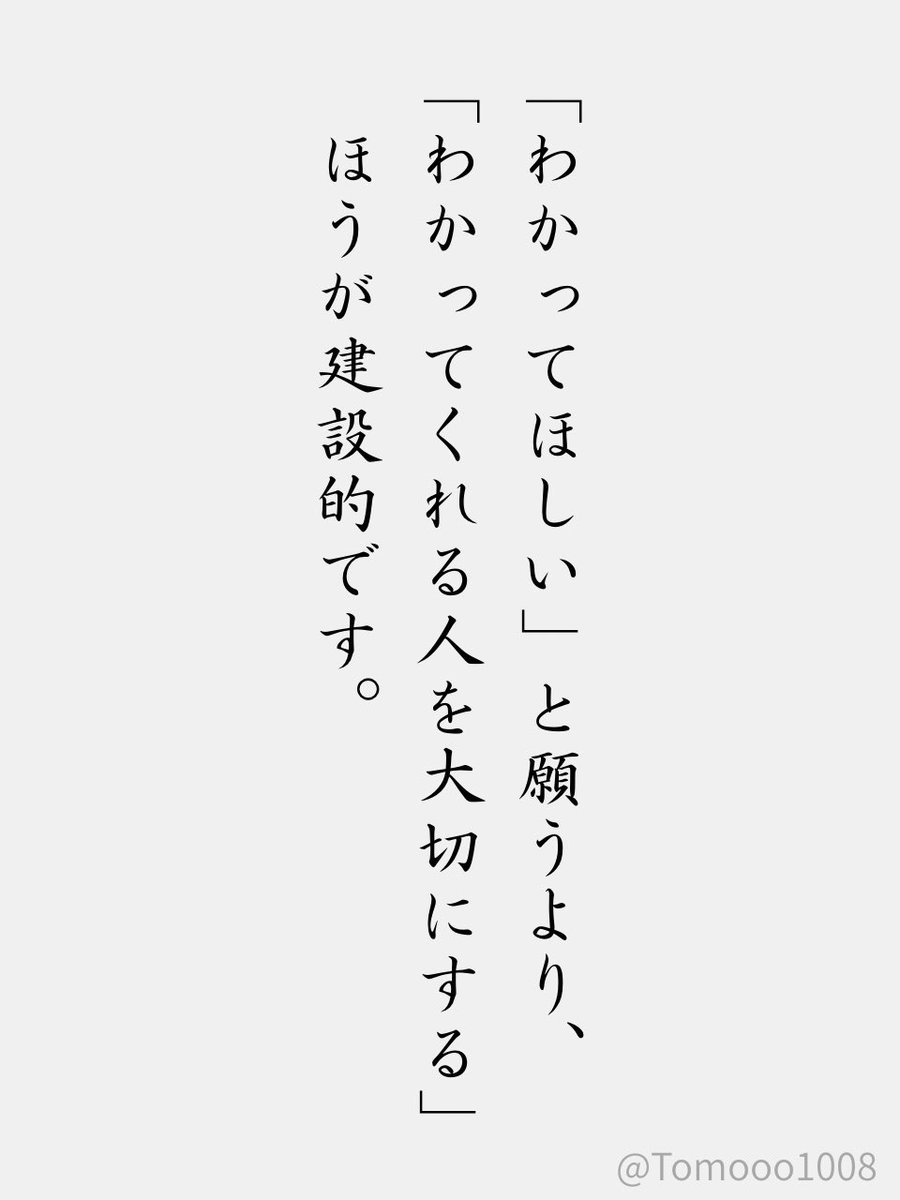 「わかってほしい」と願うより、
「わかってくれる人を大切にする」
ほうが建設的です。
@Tomooo1008